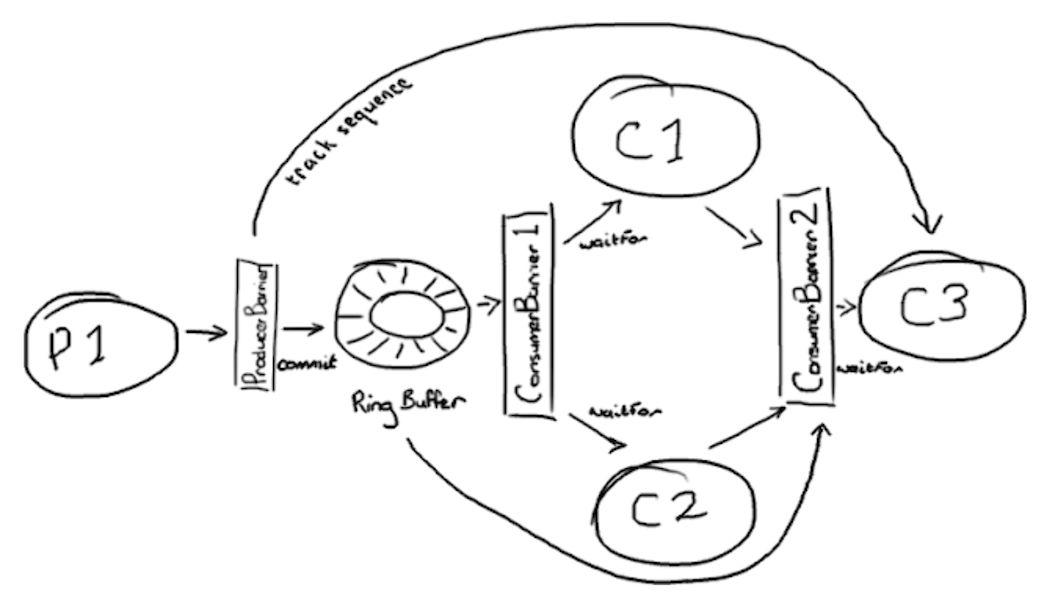 track sequence
C1
P1
ProducerBarrier
commit
Ring Buffer
ConsumerBarrier 1
waitFor
waitFor
C2
ConsumerBarrier 2
waitFor
C3